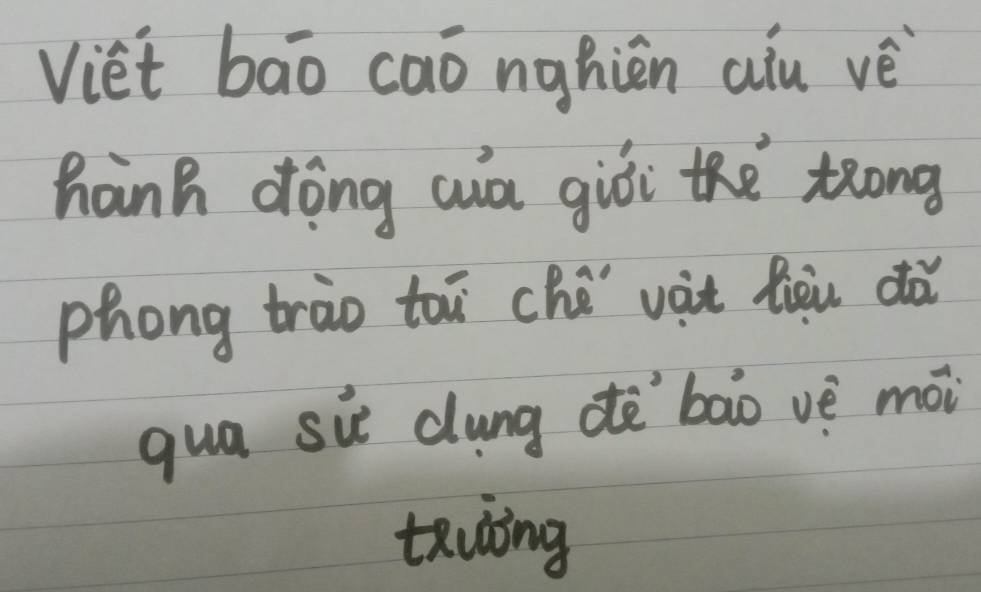 Viết báo cáo nghiên cứu về
hành động của giới trẻ trong
phong trào tái chế vật liệu đã
qua sử dụng để bảo vệ môi
trường